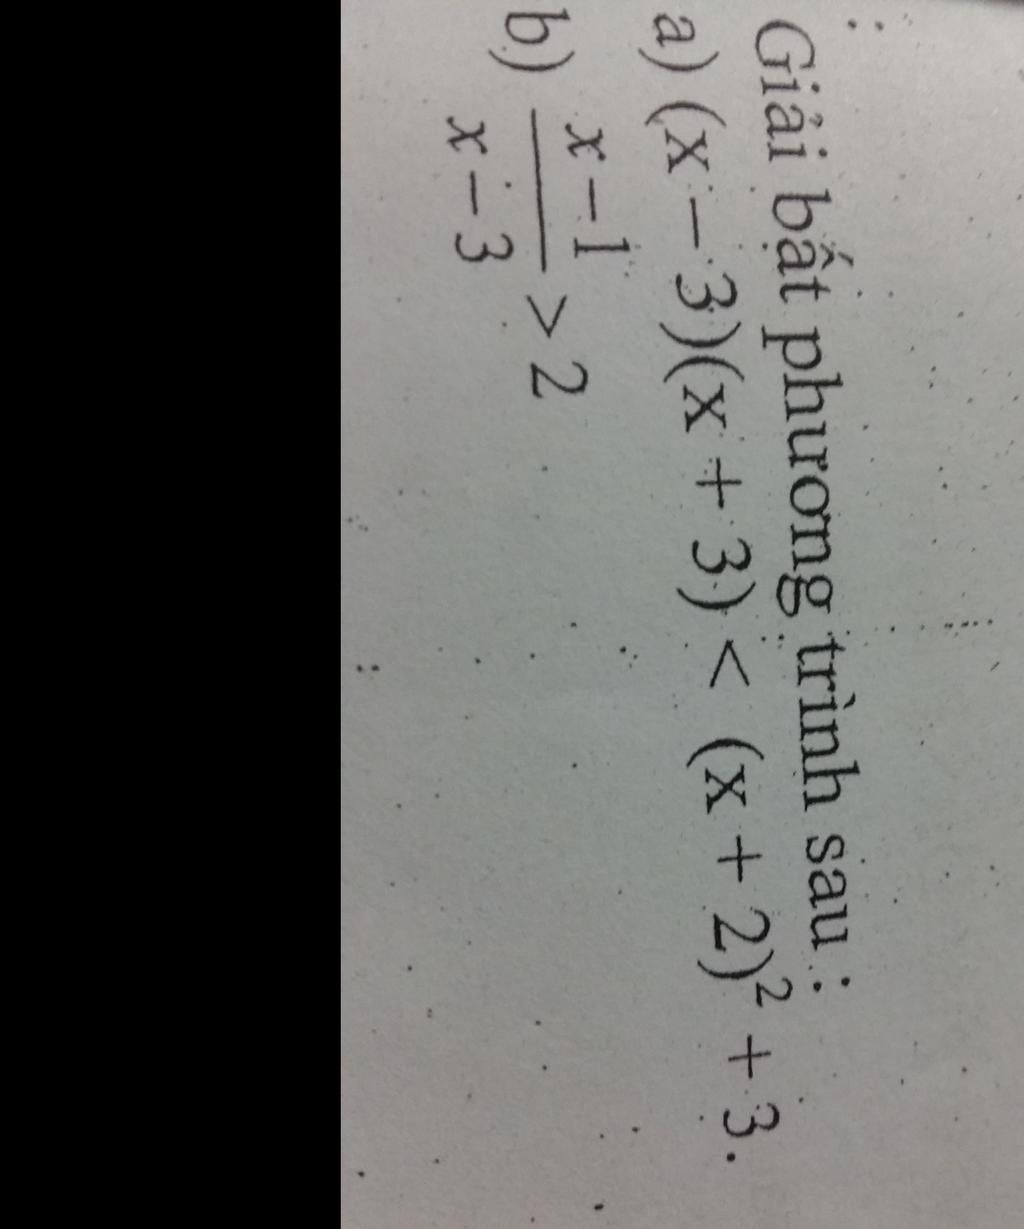 Giải bất phương trình sau :
a) (x – 3)(x + 3) < (x + 2)² + 3.
b) \frac{x-1}{x-3} > 2